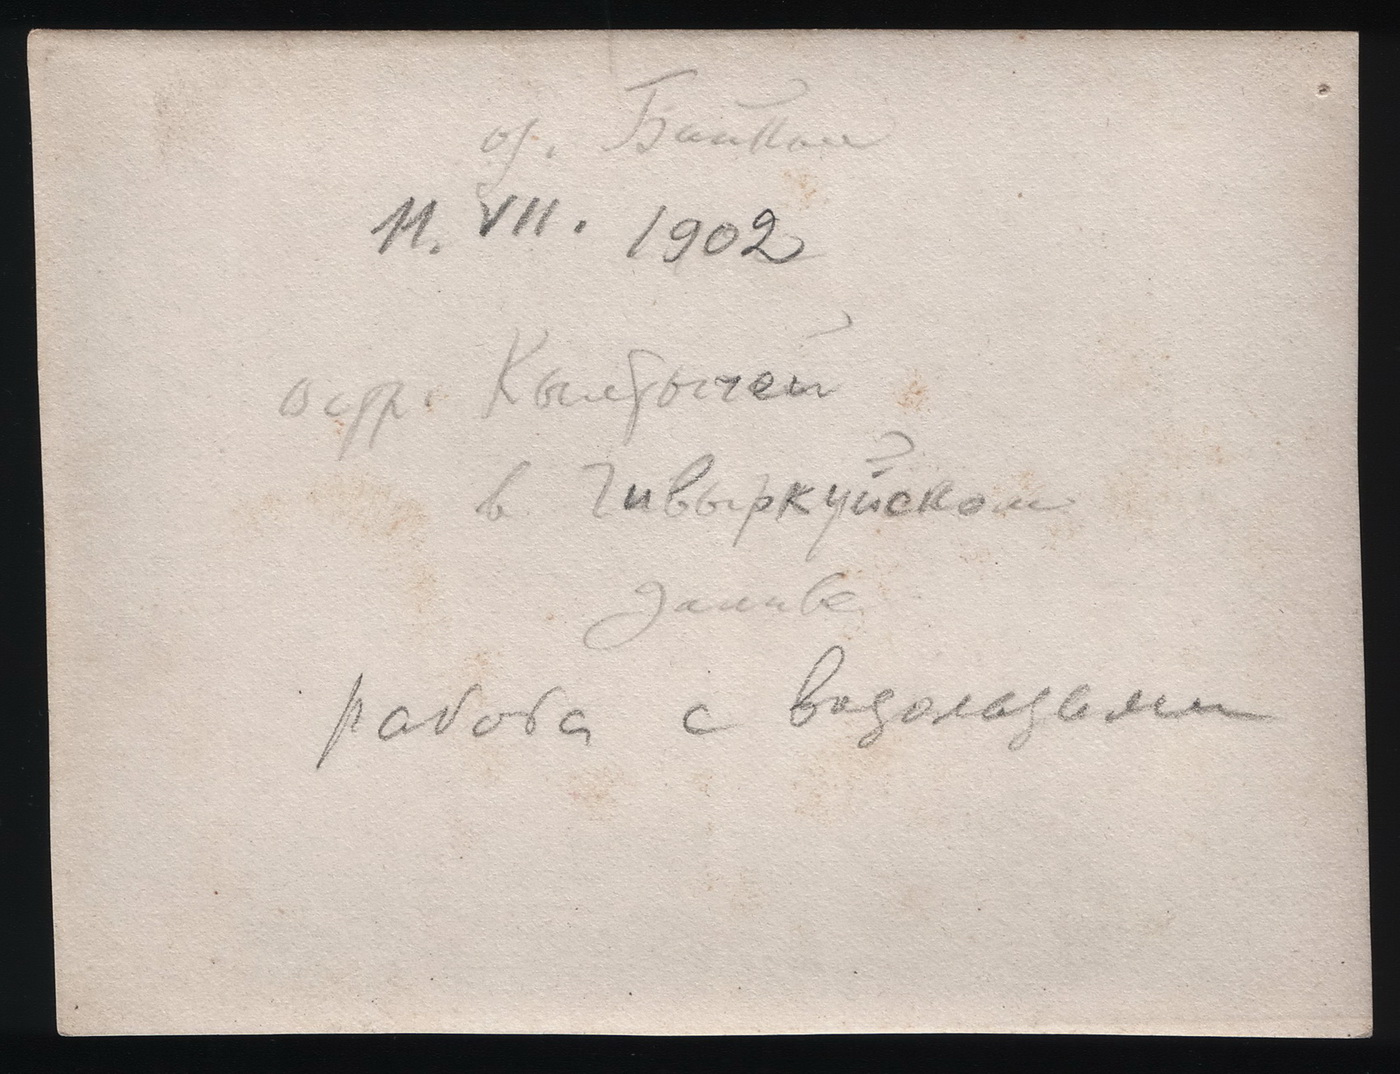 оз. Байкал
11. VII. 1902
остр. Кылтыгей
в Чивыркуйском
заливе
работа с водолазами